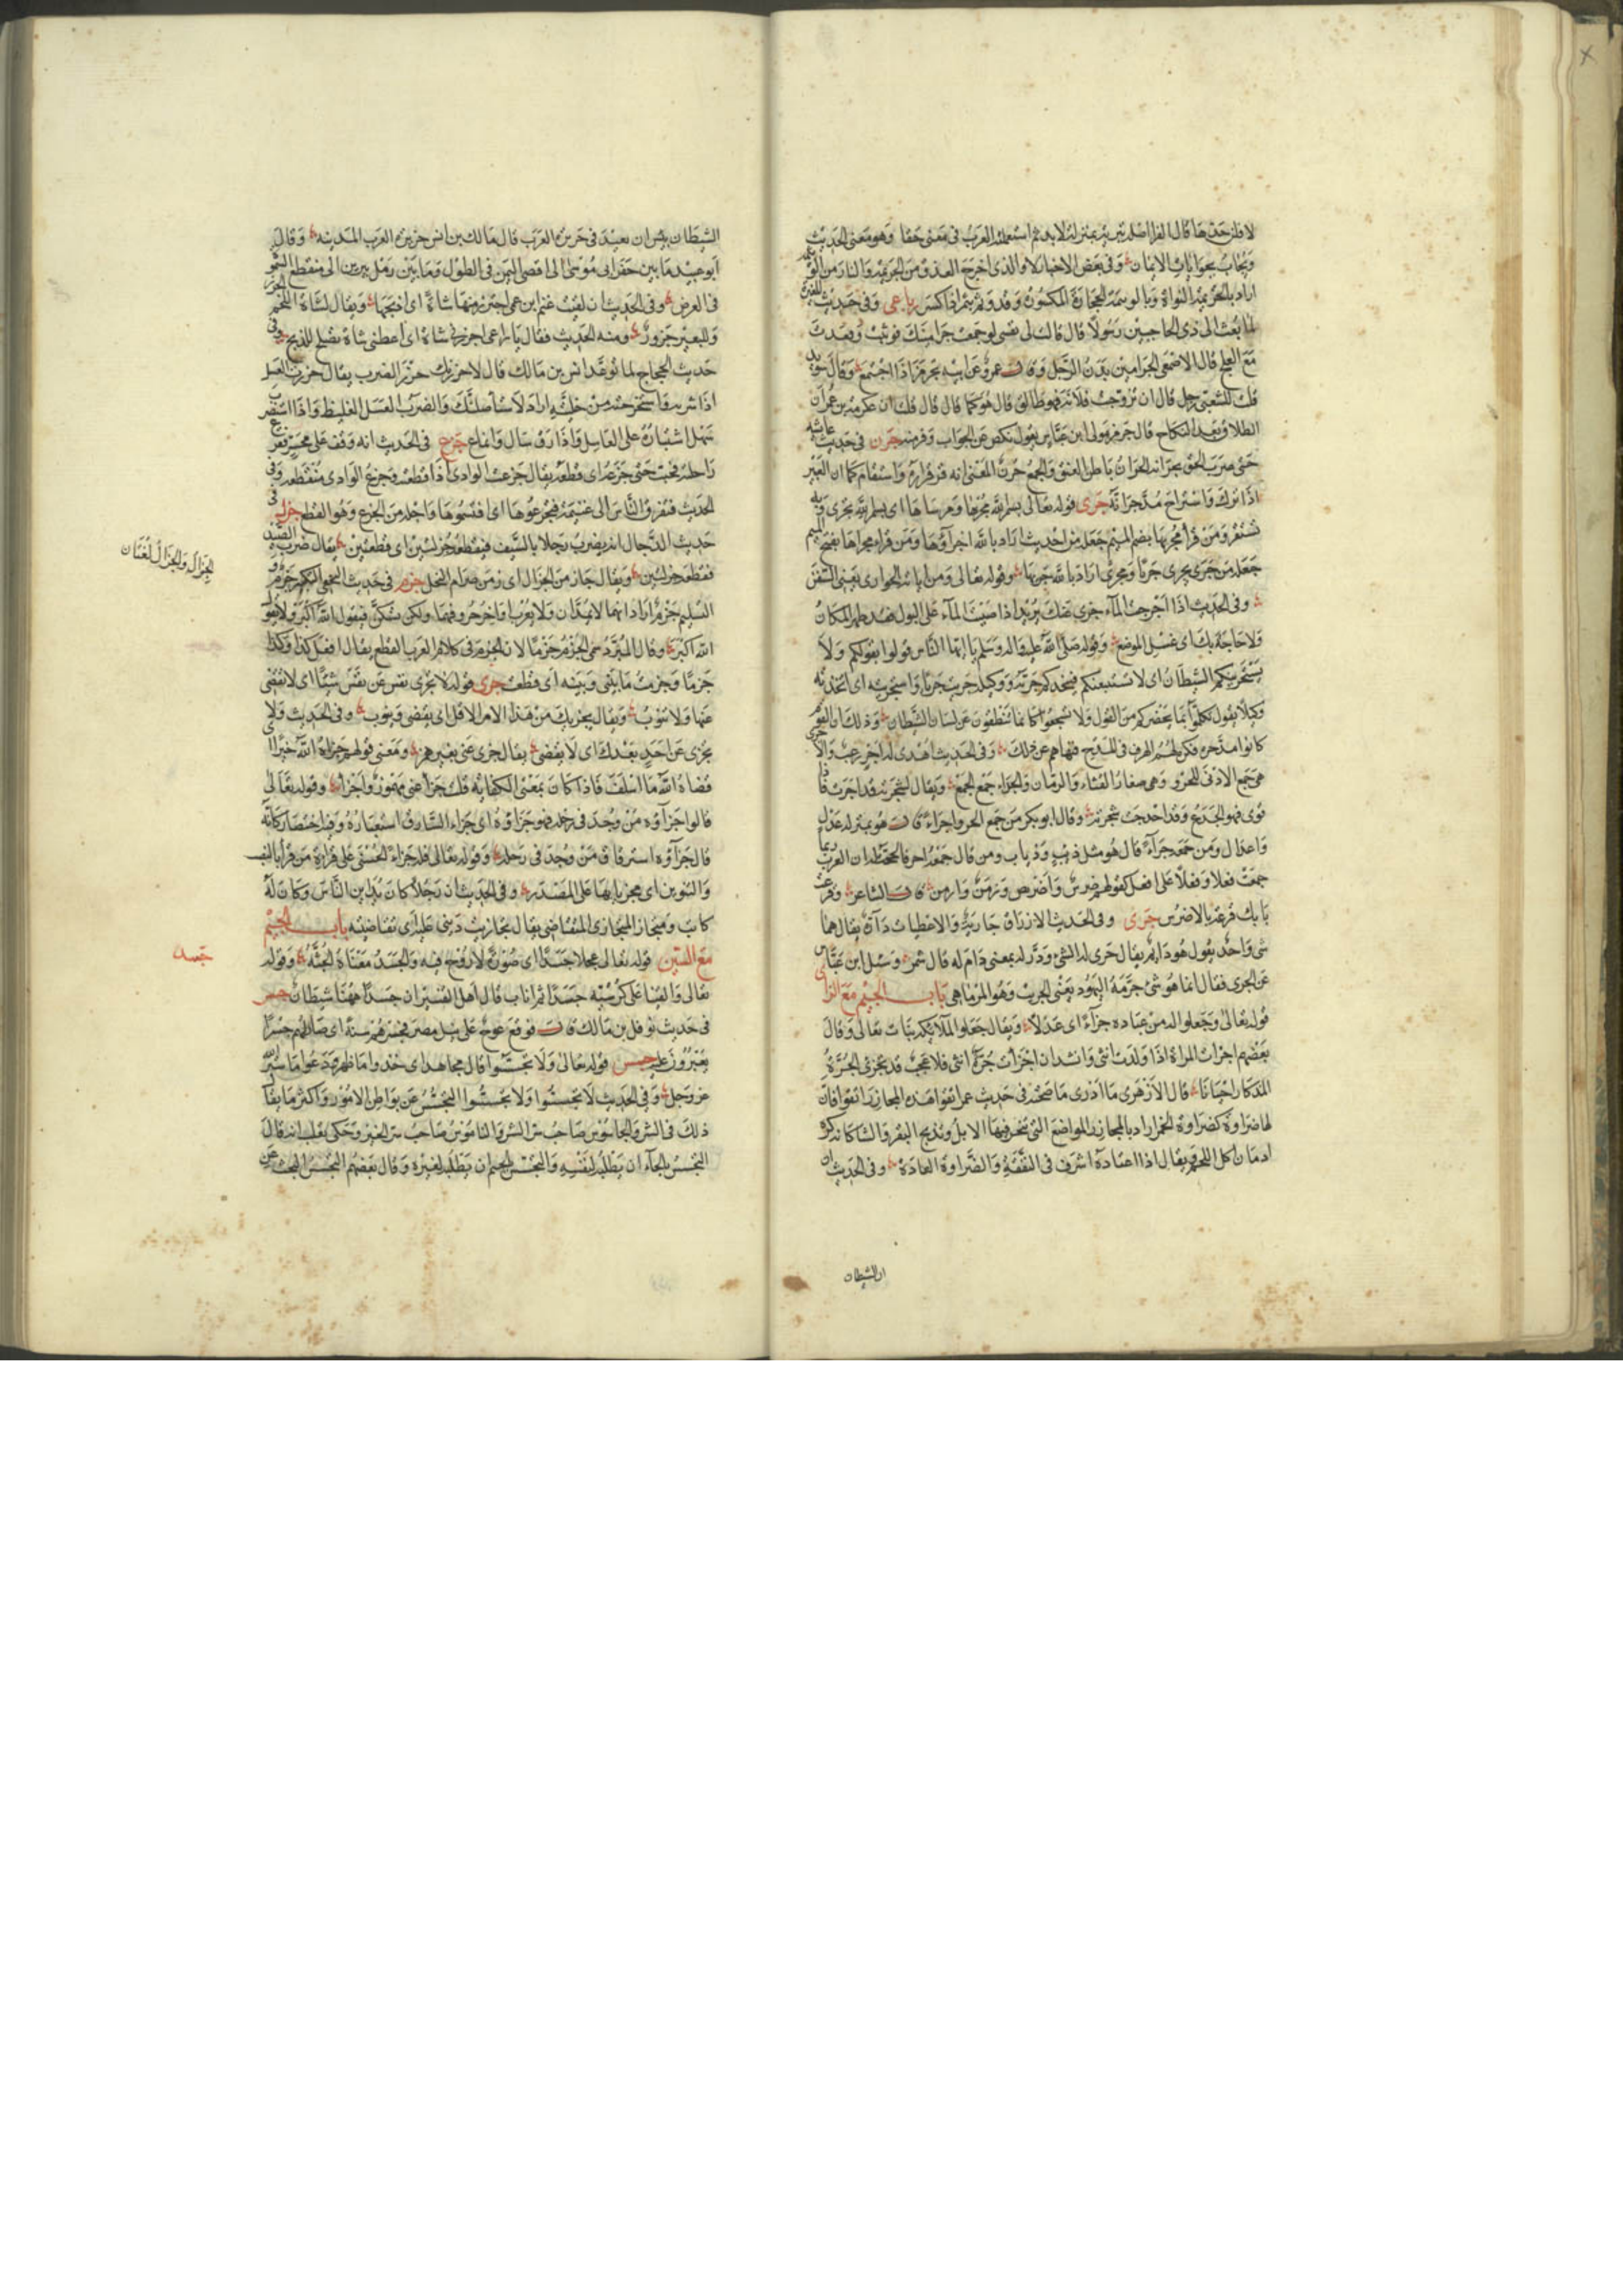 لا فلن حقها قال الفرا اصله تبرئة بمنزلة لا بد ثم استعملته العرب في معنى حقا وهو معنى الحديث
ويجاب بجوابات الايمان وفي بعض الاخبار لا والذي اخرج العذق من الجريمة والنار من الوثيمة
اراد بالجريمة النواة وبالوثيمة الحجارة المكسورة وقد وثم يثم اذا كسر رباعي وفي حديث
لما بعث الى ذي الحاجبين رسولا قال قالت لي نفسي لو جمعت جراميزك فوثبت وقعدت
مع العلج قال الاصمعي الجراميز بدن الرجل وقال عمرو عن ابيه تجرمز اذا اجتمع وقال
قلت للشعبي رجل قال ان تزوجت فلانة فهو طالق قال هو كما قال قال قلت ان عكرمة يزعم ان
الطلاق بعد النكاح قال جرمز مولى ابن عباس يقول نكص عن الجواب وفر منه جرن في حديث عائشة
حتى ضرب الحق بجرانه الجران باطن العنق والجمع جرن المعنى انه قر قراره واستقام كما ان البعير
اذا برك واستراح مد جرانه جرى قوله تعالى بسم الله مجريها ومرساها اي بسم الله تجري وبه
تستقر ومن قرأ مجريها بضم الميم جعله من اجريت اراد بالله اجراؤها ومن قراه مجراها بفتح الميم
جعله من جرى يجري جريا ومجرى اراد بالله جريها وقوله تعالى ومن اياته الجواري يعني السفن
وفي الحديث اذا اجريت الماء جرى عنك يريد اذا صببت الماء على البول فقد طهر المكان
ولا حاجة بك اى غسل الموضع وقوله صلى الله عليه واله وسلم يا ايها الناس قولوا بقولكم ولا
يستجرينكم الشيطان اى لا يستتبعنكم فيتخذكم جريه ووكيله جريت جريا واستجريته اى اتخذته
وكيلا يقول تكلموا بما يحضركم من القول ولا تسجعوا كانما تنطقون عن لسان الشيطان وذلك ان القوم
كانوا مدحوه فكره لهم الهرف في المديح فنهاهم عن ذلك وفي الحديث اهدى له اجر زغب
هي جمع الادنى للجرو وهي صغار القثاء والرمان والجراء جمع الجمع ويقال لشجرته قد اجرت فاذا
قوى فهو الجدع وقد احدجت شجرته وقال ابو بكر من جمع الجرو اجراء قال هو بمنزله عدل
واعدال ومن جمعه جراء قال هو مثل ذئب وذياب ومن قال جمعه اجر فالحجة له ان العرب ربما
جمعت فعلا وفعلا على افعل كقولهم ضرس واضرس وزمن وازمن قال الشاعر وقرعت
بابك قرعة بالاضرس جرى وفي الحديث الارزاق جارية والاعطيات دارة يقال هما
شى واحد يقول هو دائم يقال جرى له الشئ ودر له بمعنى دام له قال شمر وسئل ابن عباس
عن الجري فقال انما هو شئ حرمه اليهود يعنى الجريث وهو المرماهى باب الجيم مع الزاى
قوله تعالى وجعلوا له من عباده جزءا اى عدلا ويقال جعلوا الملائكة بنات تعالى وقال
بعضهم اجزات المراة اذا ولدت انثى وانشد ان اجزأت حرة انثى فلا عجب قد تجزئ الحرة
المذكار احيانا قال الازهرى ما ادرى ما صحته في حديث عمر اتقوا هذه المجازر اتقوا فان
لها ضراوة كضراوة الخمر اراد بالمجازر المواضع التى تنحر فيها الابل وتذبح البقر والشا كانه كره
ادمان اكل اللحم ويقال اذا اعتاده اسرف في النفقة والضراوة العادة وفي الحديث ان
ان الشيطان
الشيطان يئس ان يعبد في جزيرة العرب قال مالك بن انس جزيرة العرب المدينه وقال
ابو عبيد ما بين حفر ابى موسى الى اقصى اليمن فى الطول وما بين رمل يبرين الى منقطع السماوة
فى العرض وفى الحديث ان لقيت غنم ابن عمى اجتزر منها شاة اى اذبحها ويقال لشاة اللحم الجزر
وللبعير جزور ومنه الحديث فقال يا راعى اجزرنى شاة اى اعطنى شاة تصلح للذبح وفى
حديث الحجاج لما توعد انس بن مالك قال لاجزرنك جزر الضرب يقال جزرت العسل
اذا شرته واستخرجته من خليته اراد لاستاصلنك والضرب العسل الغليظ واذا استضرب
سهل اشتياره على العاسل واذا رق سال وانماع جزع فى الحديث انه وقف على محسر فقرع
راحلته فخبت حتى جزعه اى قطعه يقال جزعت الوادى اذا قطعته وجزع الوادى منقطعه وفى
الحديث فتفرق الناس الى غنيمة فتجزعوها اى اقتسموها واخذ من الجزع وهو القطع جزل فى
حديث الدجال انه يضرب رجلا بالسيف فيقطعه جزلتين اى قطعتين يقال ضرب الصيد
فقطعه جزلتين ويقال جاز من الجزال اى زمن صرام النخل جزم فى حديث النخعى التكبير جزم و
التسليم جزم اراد انهما لا يمدان ولا يعرب اواخر حروفهما ولكن يسكن فيقول الله اكبر ولا يقول
الله اكبر وقال المبرد سمى الجزم جزما لان الجزم فى كلام العرب القطع يقال افعل كذا وكذا
جزما وجزمت ما بينى وبينه اى قطعت جزى قوله لا تجزى نفس عن نفس شيئا اى لا تقضى
عنها ولا تنوب ويقال يجزيك من هذا الامر الاقل اى يقضى وينوب وفى الحديث ولا
يجزى عن احد بعدك اى لا يقضى يقال جزى عنى بغير همز ومعنى قولهم جزاه الله خيرا
قضاه الله ما اسلف فاذا كان بمعنى الكفاية قلت جزأ عنى مهموز واجزأ وقوله تعالى
قالوا جزاؤه من وجد فى رحله فهو جزاؤه اى جزاء السارق استعباره وفيه اختصار كانه
قال جزاؤه استرقاق من وجد فى رحله وقوله تعالى فله جزاء الحسنى على قراءة من قرأ بالنصب
والتنوين اى مجزيا بها على المصدر وفى الحديث ان رجلا كان يداين الناس وكان له
كاتب ومتجاز المتجازى المتقاضى يقال تجازيت دينى عليه اى تقاضيته باب الجيم
مع السين قوله تعالى عجلا جسدا اى صورة لا روح فيه والجسد معناه الجثة وقوله
تعالى والقينا على كرسيه جسدا ثم اناب قال اهل التفسير ان جسدا ههنا شيطان جسر
فى حديث نوفل بن مالك قال فوقع عوج على نيل مصر فجسرهم سنة اى صار لهم جسرا
يعبرون عليه جسس قوله تعالى ولا تجسسوا قال مجاهد اى خذوا ما ظهر ودعوا ما ستر الله
عز وجل وفى الحديث لا تجسسوا ولا تحسسوا التجسس عن بواطن الامور واكثر ما يقال
ذلك فى الشر والجاسوس صاحب سر الشر والناموس صاحب سر الخير وحكى ثعلب انه قال
التحسس بالحاء ان يطلبه لنفسه والتجسس بالجيم ان يطلبه لغيره وقال بعضهم التجسس البحث عن
الجزال والجزال لغتان
جسد